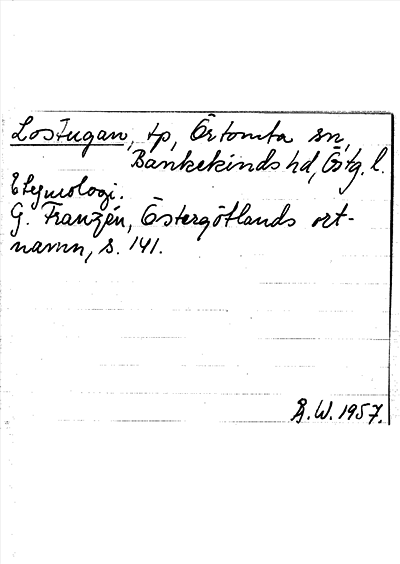 Lostugan, tp, Örtomta sn,
Bankekinds hd, Östg. l.
Etymologi.
G. Franzén, Östergötlands ort-
namn, s. 141.
Å.W. 1957.